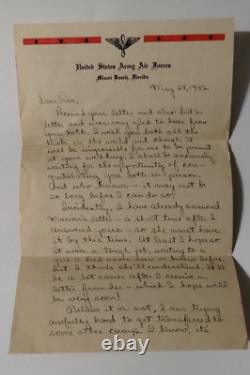 United States Army Air Forces
Miami Beach, Florida
May 28, 1942
Dear Rose,
Received your letter and also Sid's
letter and was very glad to hear from
you both. I wish you both all the
luck in the world and though it
will be impossible for me to be present
at your wedding, I shall be anxiously
waiting for the opportunity of con-
gratulating you both in person.
And who knows – it may not be
so long before I can do so!
Incidently, I have already answered
letter – a short time after I
answered yours – so she must have
it by this time. At least I hope so.
It was a tough job, writing to a
girl I had never seen or before
but I think she'll understand. It'll be
a lot easier after I receive a
letter from her – which I hope will
be very soon!
Believe it or not, I am trying
awfully hard to get transferred to
some other camp. I know, it's